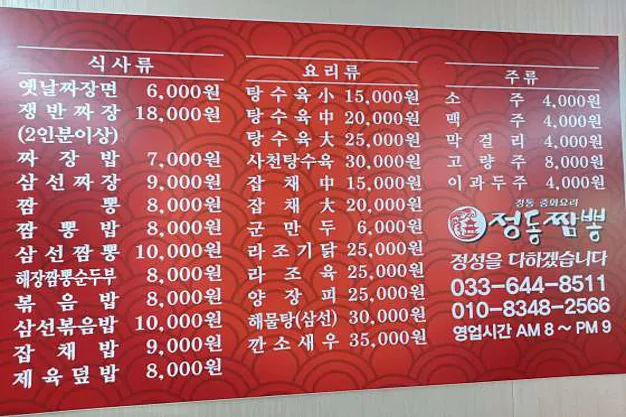 식사류
옛날짜장면 6,000원
쟁반짜장 18,000원
(2인분이상)
짜장밥 7,000원
삼선짜장 9,000원
짬뽕 8,000원
짬뽕밥 8,000원
삼선짬뽕 10,000원
해장짬뽕순두부 8,000원
볶음밥 8,000원
삼선볶음밥 10,000원
잡채밥 9,000원
제육덮밥 8,000원
요리류
탕수육小 15,000원
탕수육中 20,000원
탕수육大 25,000원
사천탕수육 30,000원
잡채中 15,000원
잡채大 20,000원
군만두 6,000원
라조기닭 25,000원
라조육 25,000원
양장피 25,000원
해물탕(삼선) 30,000원
깐소새우 35,000원
주류
소주 4,000원
맥주 4,000원
막걸리 4,000원
고량주 8,000원
이과두주 4,000원
정통 중화요리
정동짬뽕
정성을 다하겠습니다
033-644-8511
010-8348-2566
영업시간 AM 8 ~ PM 9